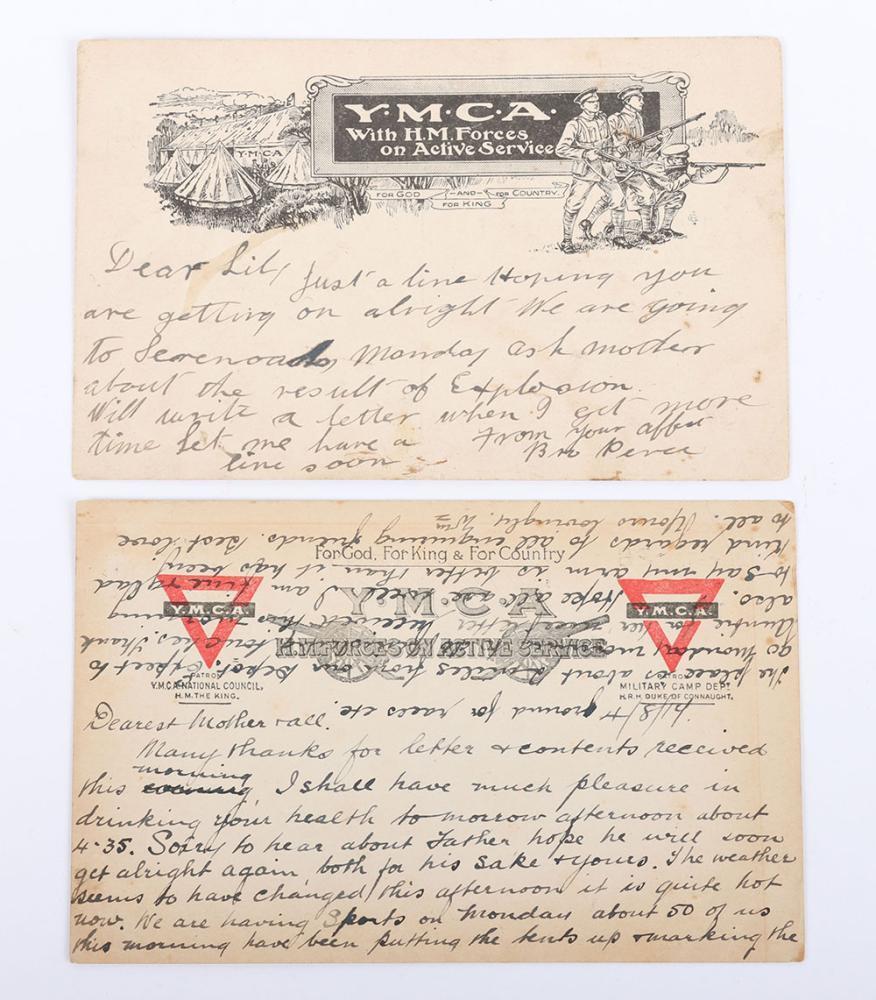 Y·M·C·A·
With H.M. Forces
on Active Service
Y·M·C·A
FOR GOD —AND— FOR COUNTRY.
FOR KING
Dear Lil, Just a line Hoping you
are getting on alright We are going
to Monday ask mother
about the result of Explosion.
Will write a letter when I get more
time Let me have a From Your affct
line soon Bro Percy
For God, For King & For Country
Y.M.C.A
H.M. FORCES ON ACTIVE SERVICE
Y.M.C.A.
PATRON
Y.M.C.A. NATIONAL COUNCIL,
H.M. THE KING.
Y.M.C.A.
PATRON
MILITARY CAMP DEPT
H.R.H. DUKE OF CONNAUGHT.
Dearest Mother & all.
Many thanks for letter & contents received
this morning I shall have much pleasure in
drinking your health to morrow afternoon about
4-35. Sorry to hear about Father hope he will soon
get alright again both for his sake & yours. The weather
seems to have changed this afternoon it is quite hot
now. We are having Sports on Monday about 50 of us
this morning have been putting the tents up & marking the
ground for races etc.
The place is about 2 miles from our Depot. Expect to
go Monday Thank
Auntie for her letter received this morning
also. Hope all are well I am fine & glad
to say my arm is better than it has been
Kind regards to all enquiring friends. Best love
to all. Yours lovingly. Wm